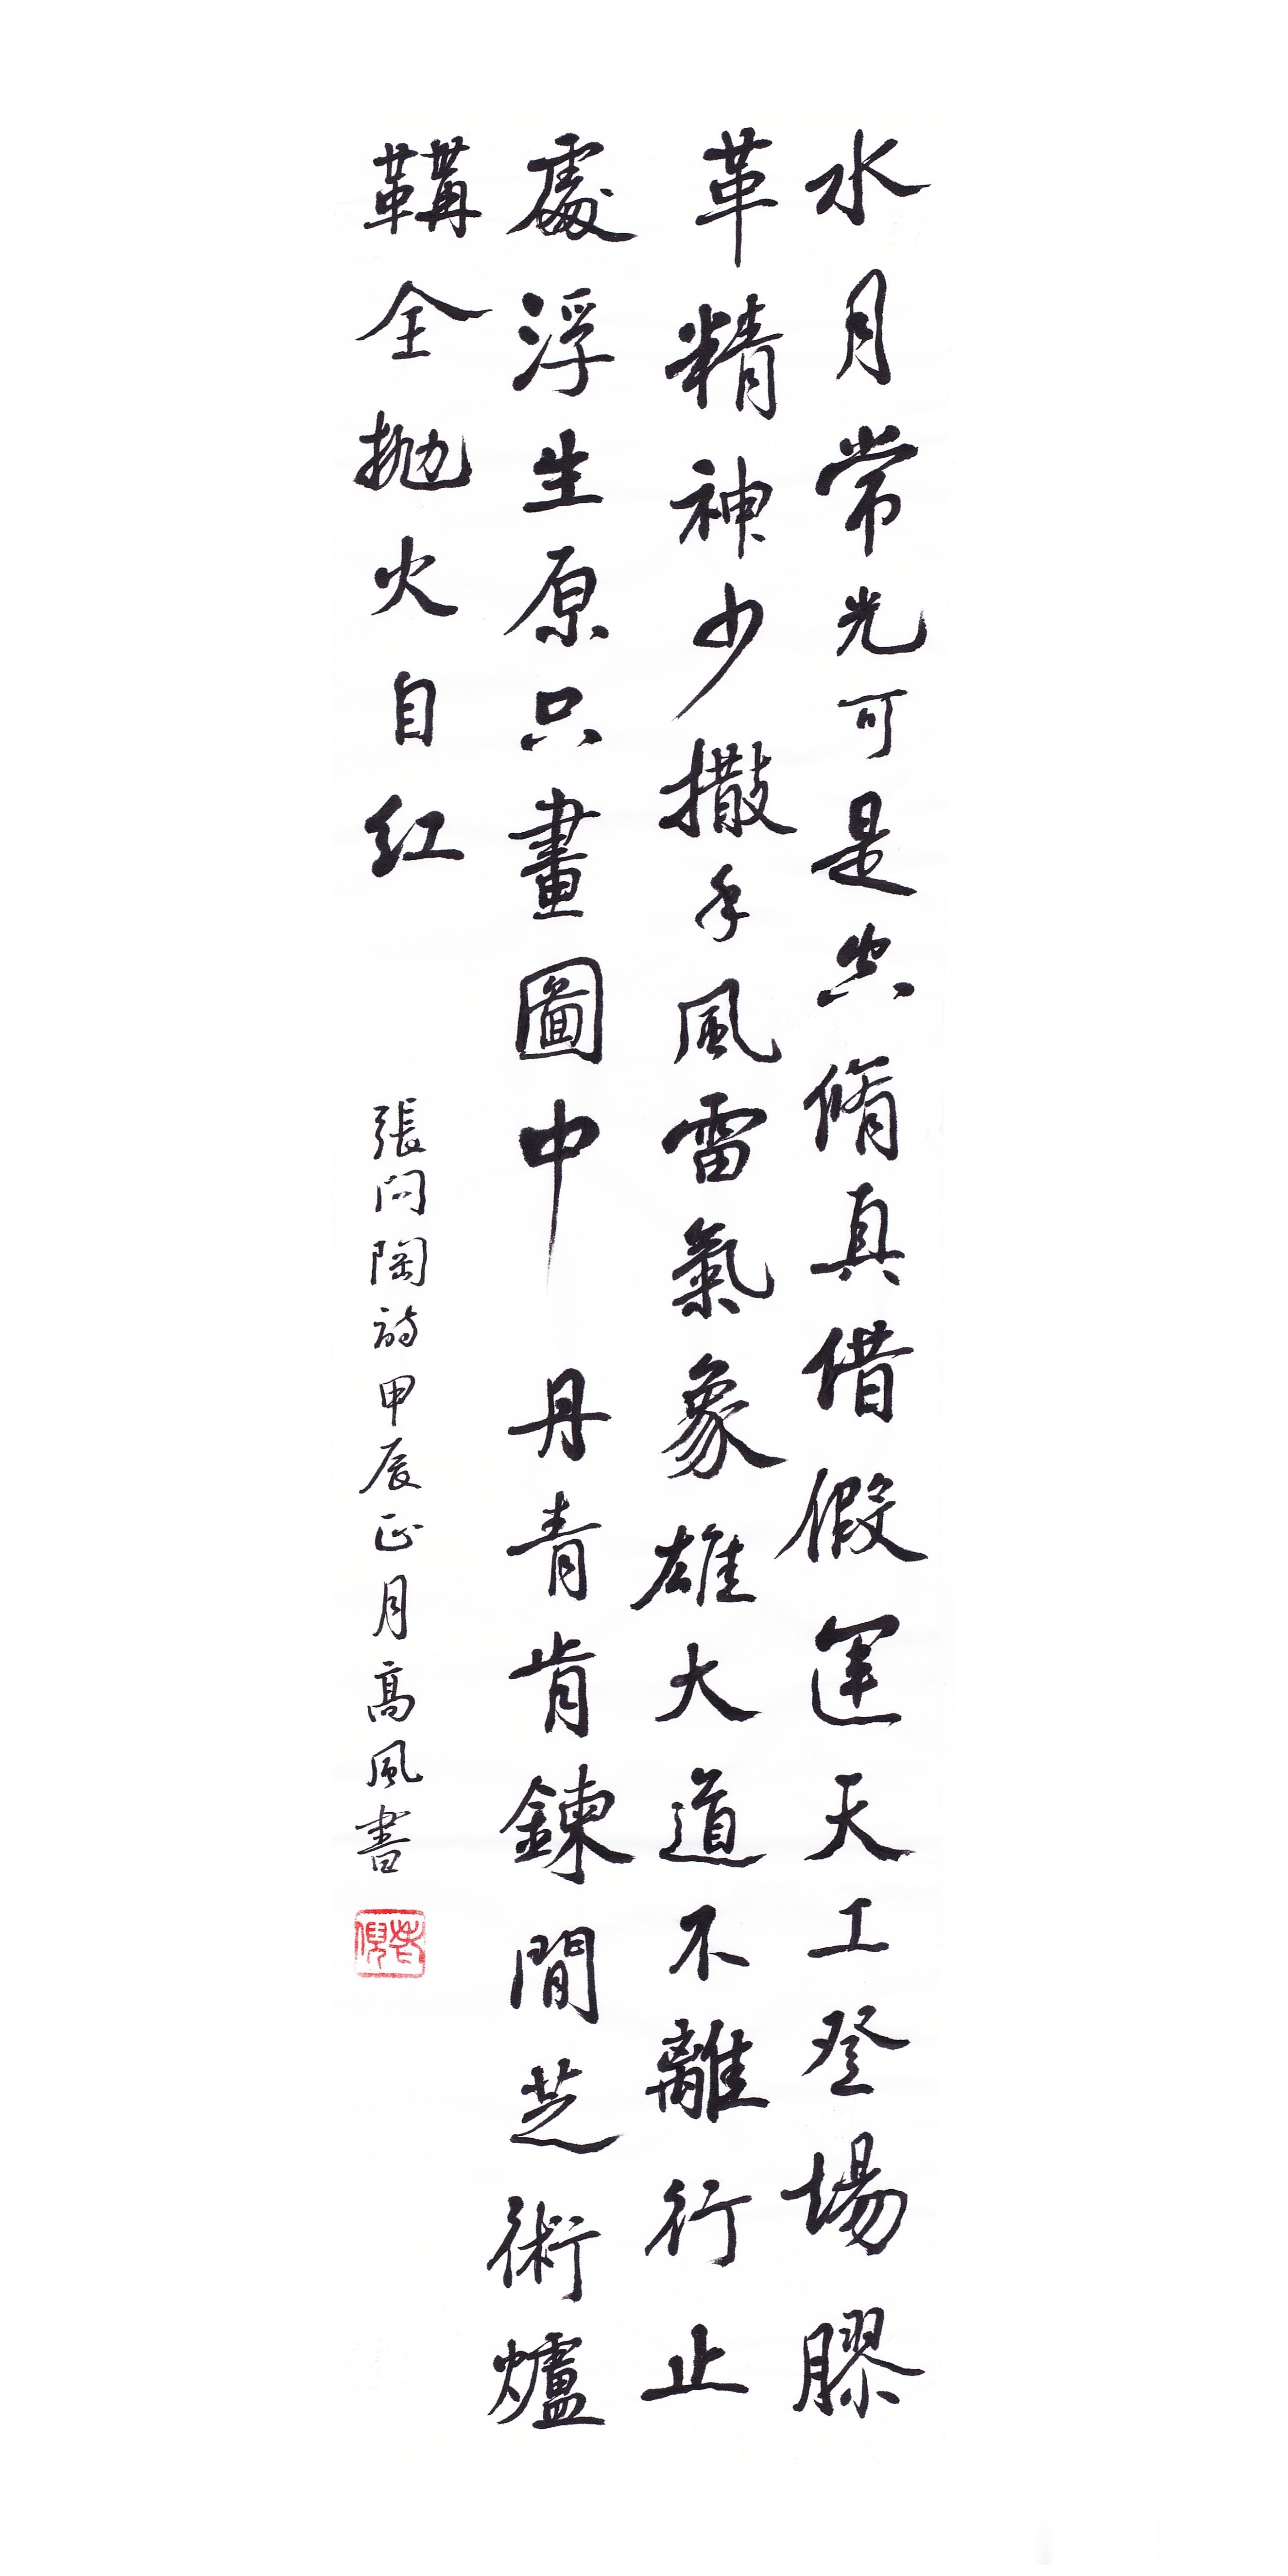 水月常光可是空脩真借假運天工登場膠
革精神少撒手風雷氣象雄大道不離行止
處浮生原只畫圖中 丹青肯鍊閒芝術爐
鞲全拋火自紅
張問陶詩甲辰正月高風書